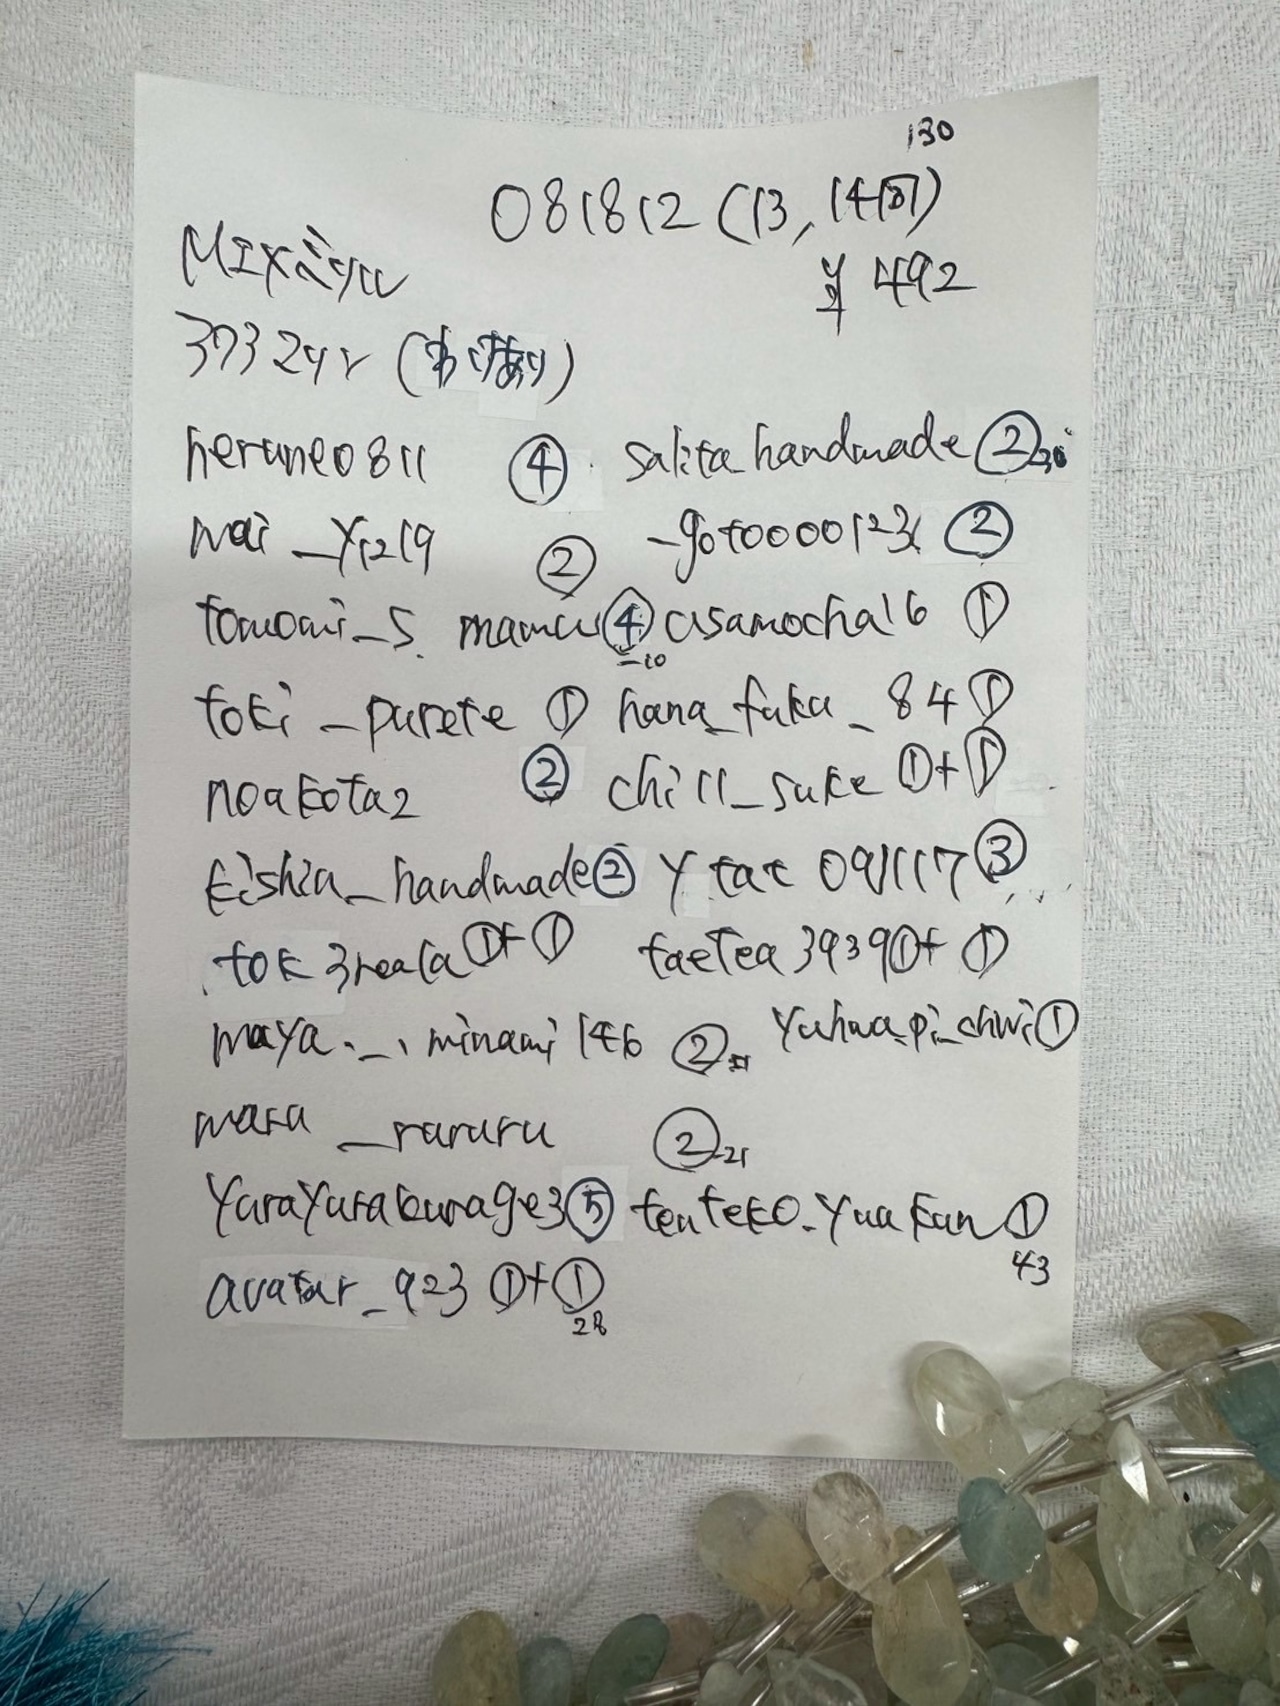 130
081812 (13, 14時)
¥ 492
MIX
heruneo811 ④ salita_handmade ②
mai_y1219 ② _gotoooo123 ②
tomomi_s. mamau ④ asamocha16 ①
-10
toki_purete ① hana_fuku_84 ①
noakota2 ② chill_suke ①+①
kishia_handmade ② y.tat 091117 ③
tok3reala ①+① taetea3939 ①+ ①
maya._.minami146 ② yuhua_pi_chwi ①
maru_rururu ② -21
yurayurakurage3 ⑤ tenteko.yuakun ①
43
avatar_923 ①+①
28